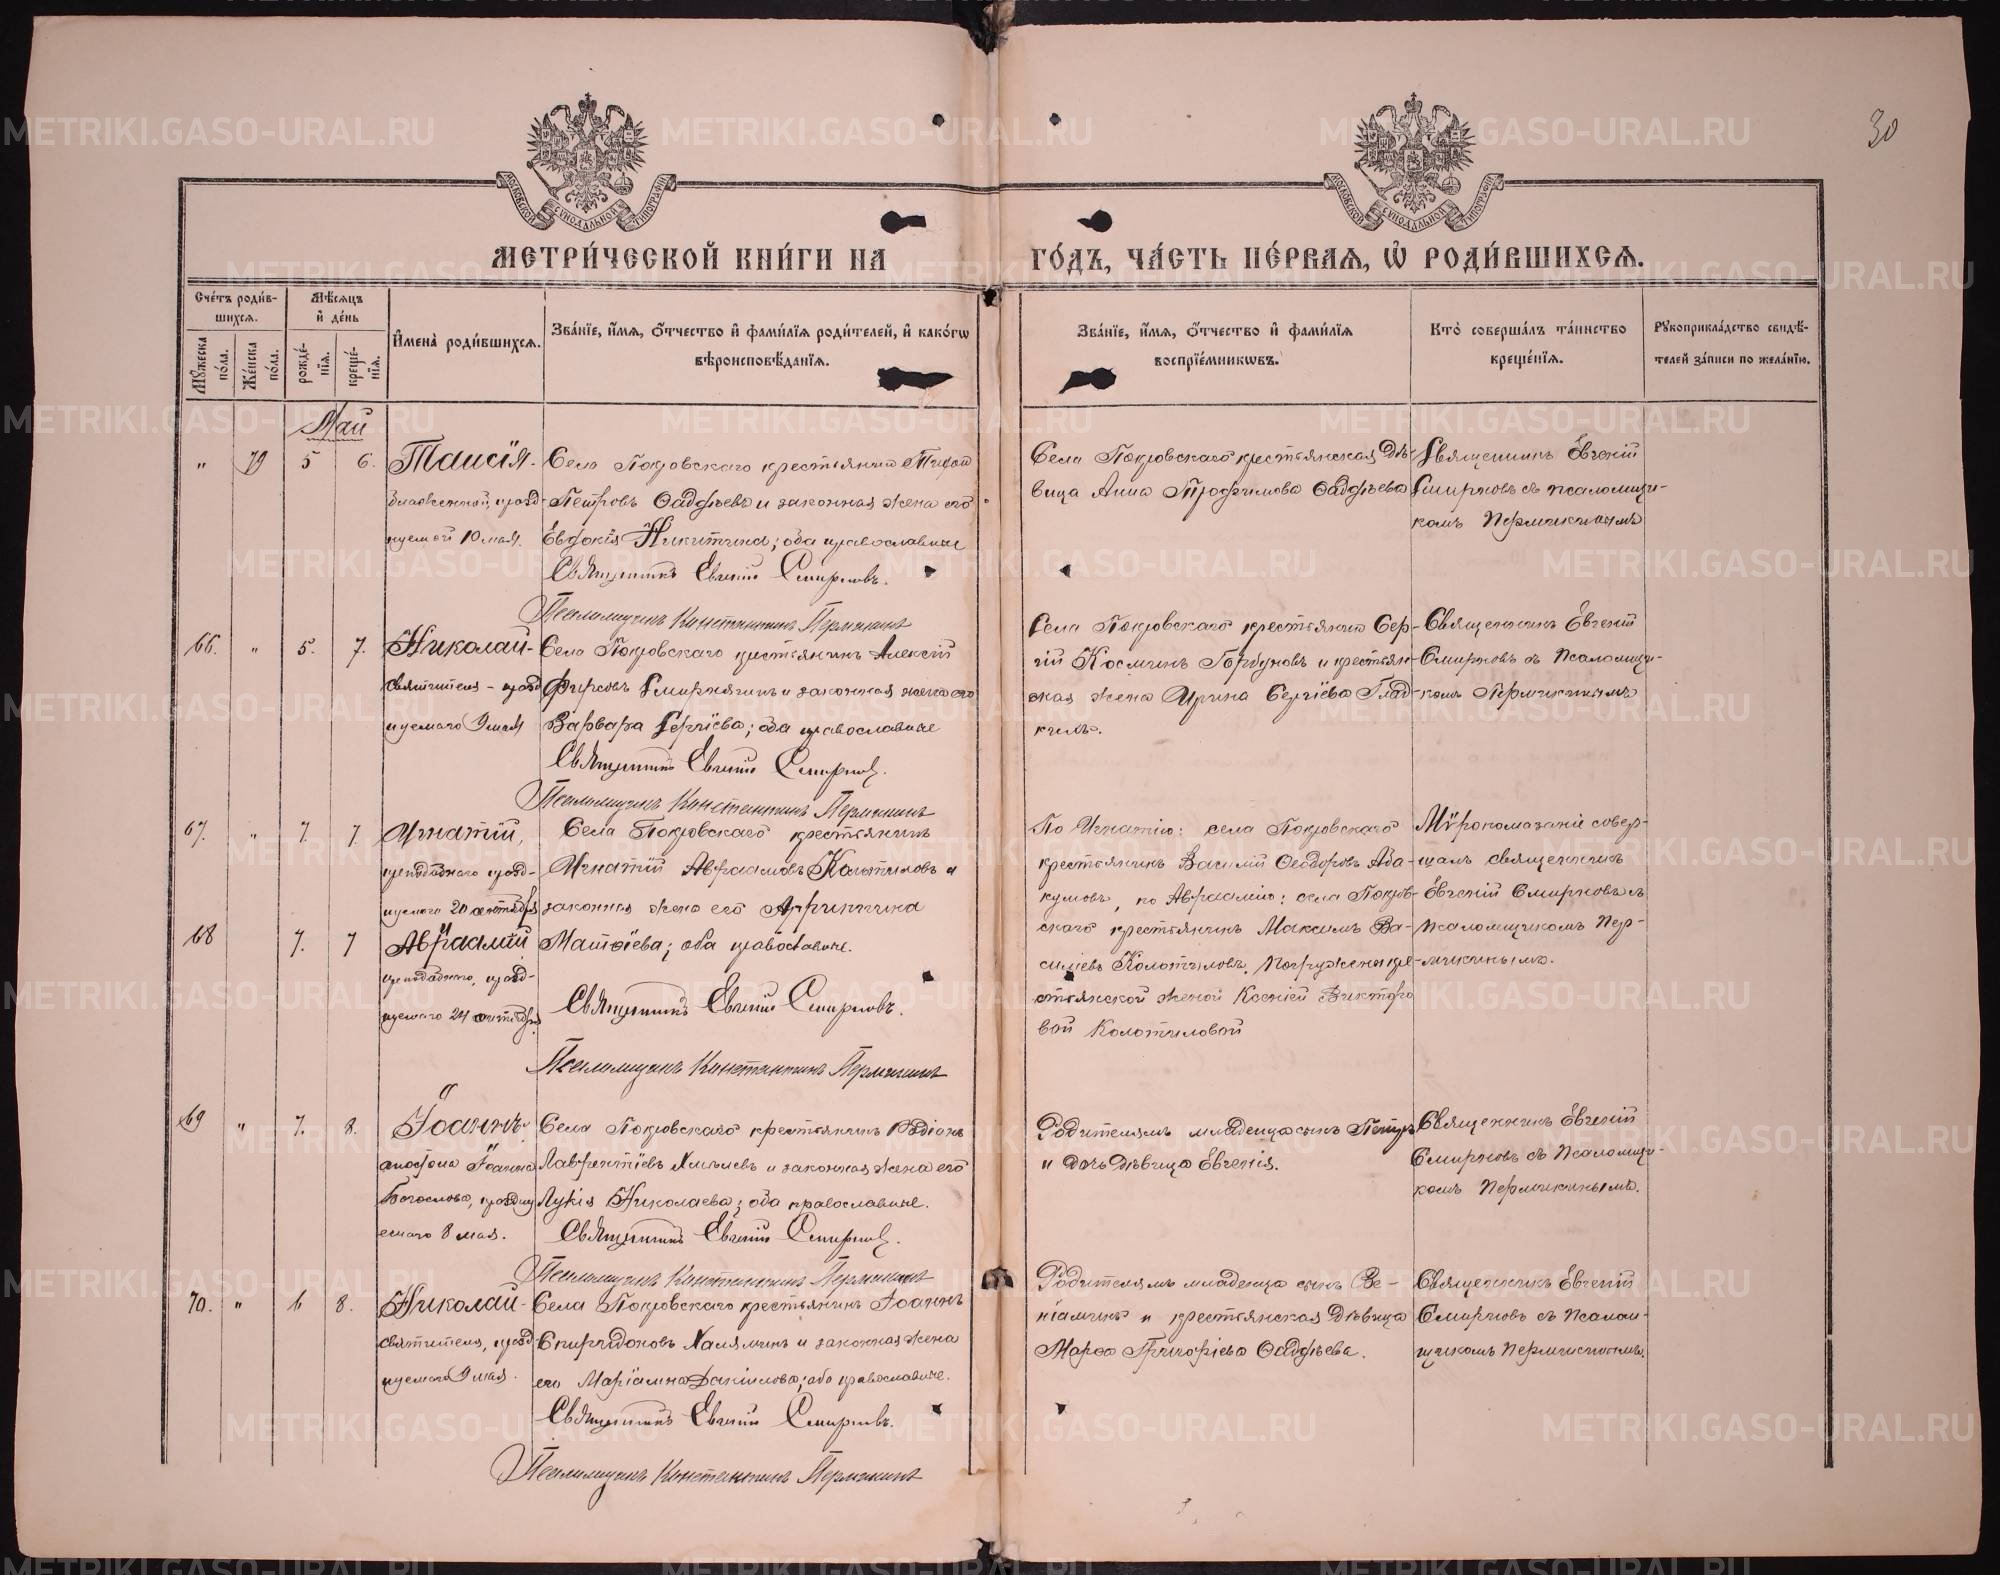 30
МОСКОВСКОЙ СѴНОДАЛЬНОЙ ТИПОГРАФІИ
МОСКОВСКОЙ СѴНОДАЛЬНОЙ ТИПОГРАФІИ
МЕТРИ́ЧЕСКОЙ КНИ́ГИ НА ГО́ДЪ, ЧА́СТЬ ПЕ́РВАѦ, Ѡ РОДИ́ВШИХСѦ.
Сче́тъ роди́в-
шихсѧ.
Мꙋ́жеска по́ла.
Же́нска по́ла.
Мѣ́сѧцъ
и҆ де́нь
рожде́-
нїѧ.
креще́-
нїѧ.
И҆мена̀ роди́вшихсѧ.
Зва́нїе, и҆́мѧ, ѻ҆́тчество и҆ фами́лїѧ роди́телей, и҆ како́гѡ
вѣроисповѣ́данїѧ.
Зва́нїе, и҆́мѧ, ѻ҆́тчество и҆ фами́лїѧ
воспрїе́мникѡвъ.
Кто̀ соверша́лъ та́инство
креще́нїѧ.
Рꙋкоприкла́дство свидѣ́-
телей за́писи по жела́нїю.
Май
" 79 5 6. Таисія.
блаженной, празд-
нуемой 10 мая.
Села Покровскаго крестьянинъ Тихон
Петровъ Ѳадѣевъ и законная жена его
Евдокія Никитина; оба православные
Священникъ Евгеній Смирновъ.
Псаломщикъ Константинъ Пермикинъ
Села Покровскаго крестьянская дѣ-
вица Анна Трофимова Ѳадѣева
Священникъ Евгеній
Смирновъ съ псаломщи-
комъ Пермикинымъ
66. " 5. 7. Николай-
святителя - празд
нуемаго 9 мая
Села Покровскаго крестьянинъ Алексій
Фирсовъ Смирнягинъ и законная жена его
Варвара Сергіева; оба православные
Священникъ Евгеній Смирнов.
Псаломщикъ Константинъ Пермикинъ
Села Покровскаго крестьянинъ Сер-
гій Косминъ Горбуновъ и крестьян-
ская жена Ирина Сергіева Глад-
кихъ.
Священникъ Евгеній
Смирновъ съ Псаломщи-
комъ Пермикинымъ
67. " 7. 7. Игнатій,
преподобнаго празд-
нуемаго 20 декабря
Села Покровскаго крестьянинъ
Игнатій Авраамовъ Колотиловъ и
законная жена его Агрипина
68 7. 7 Авраамій
преподобнаго, празд-
нуемаго 24 октября
Матѳіева; оба православные.
Священникъ Евгеній Смирновъ.
Псаломщикъ Константинъ Пермикинъ
По Игнатію: села Покровскаго
крестьянинъ Василій Ѳеодоровъ Аба-
кумовъ, по Авраамію: села Покров-
скаго крестьянинъ Максимъ Ва-
силіевъ Колотиловъ. Погружены кре-
стьянской женой Ксеніей Викторо
вой Колотиловой
Мѵропомазаніе совер-
шалъ священникъ
Евгеній Смирновъ съ
псаломщикомъ Пер-
микинымъ.
69 " 7. 8. Іоаннъ.
апостола Іоанна
Богослова, праздну
емаго 8 мая.
Села Покровскаго крестьянинъ Родіонъ
Лаврентіевъ и законная жена его
Лукія Николаева; оба православные.
Священникъ Евгеній Смирнов.
Псаломщикъ Константинъ Пермикинъ
Родителямъ младенца сынъ Петръ
и дочь дѣвица Евгенія.
Священникъ Евгеній
Смирновъ съ Псаломщи-
комъ Пермикинымъ.
70. " 6 8. Николай-
святителя, празд
нуемаго 9 мая.
Села Покровскаго крестьянинъ Іоаннъ
Спиридоновъ Халяминъ и законная жена
его Маріамна Данилова; оба православные.
Священникъ Евгеній Смирновъ.
Псаломщикъ Константинъ Пермикинъ
Родителямъ младенца сынъ Ве-
ніаминъ и крестьянская дѣвица
Марѳа Григоріева Ѳадѣева.
Священникъ Евгеній
Смирновъ съ Псалом-
щикомъ Пермикинымъ.
METRIKI.GASO-URAL.RU